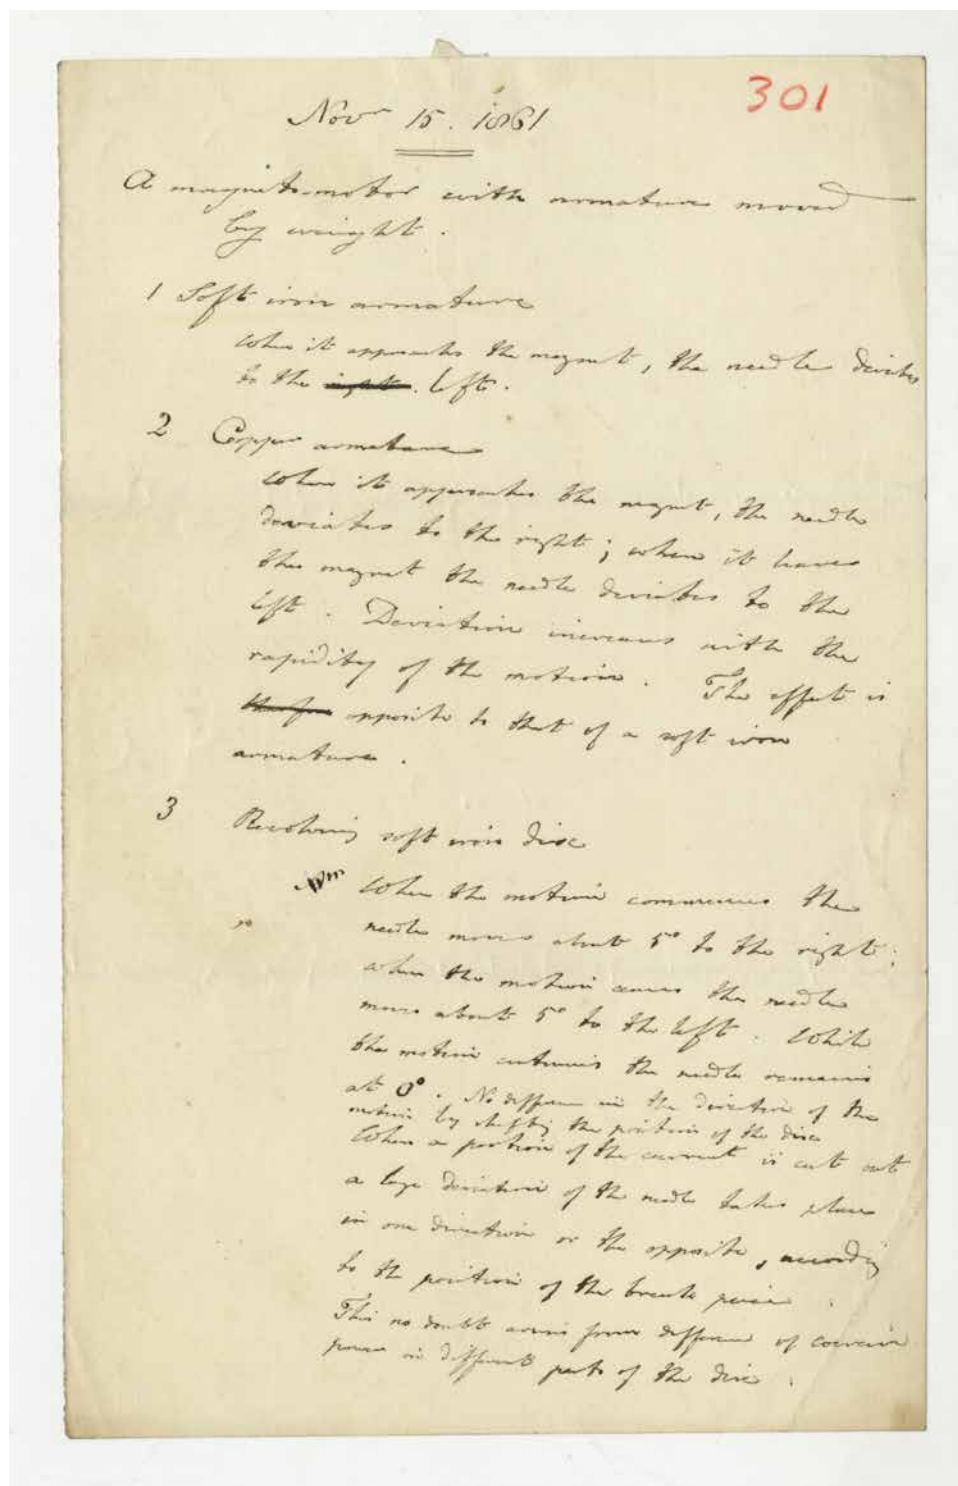 301
Novr 15. 1861
A magneto-motor with armature moved
by weight.
1 Soft iron armature
When it approaches the magnet, the needle deviates
to the right. left.
2 Copper armature
When it approaches the magnet, the needle
deviates to the right; when it leaves
the magnet the needle deviates to the
left. Deviation increases with the
rapidity of the motion. The effect is
opposite to that of a soft iron
armature.
3 Revolving soft iron disc
When the motion commences the
needle moves about 5° to the right;
when the motion ceases the needle
moves about 5° to the left. While
the motion continues the needle remains
at 0°. No difference in the direction of the
motion by shifting the position of the disc
When a portion of the current is cut out
a large deviation of the needle takes place
in one direction or the opposite, according
to the position of the break piece.
This no doubt arises from difference of coercive
power in different parts of the disc.